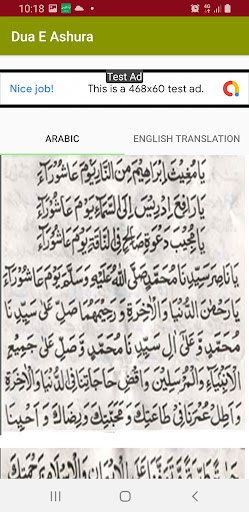 10:18
4G
Dua E Ashura
Test Ad
Nice job!
This is a 468x60 test ad.
ARABIC
ENGLISH TRANSLATION
يَا مُغِيثَ إِبْرَاهِيمَ مِنَ النَّارِ يَوْمَ عَاشُورَآءَ
يَا رَافِعَ إِدْرِيسَ إِلَى السَّمَآءِ يَوْمَ عَاشُورَآءَ
يَا مُجِيبَ دَعْوَةِ صَالِحٍ فِي النَّاقَةِ يَوْمَ عَاشُورَآءَ
يَا نَاصِرَ سَيِّدِنَا مُحَمَّدٍ صَلَّى اللهُ عَلَيْهِ وَسَلَّمَ يَوْمَ عَاشُورَآءَ
يَا رَحْمٰنَ الدُّنْيَا وَالْاٰخِرَةِ وَرَحِيمَهُمَا صَلِّ عَلٰى سَيِّدِنَا
مُحَمَّدٍ وَّعَلٰى اٰلِ سَيِّدِنَا مُحَمَّدٍ وَّصَلِّ عَلٰى جَمِيعِ
الْاَنْبِيَآءِ وَالْمُرْسَلِينَ وَاقْضِ حَاجَاتِنَا فِي الدُّنْيَا وَالْاٰخِرَةِ
وَاَطِلْ عُمُرَنَا فِي طَاعَتِكَ وَمَحَبَّتِكَ وَرِضَاكَ وَاَحْيِنَا